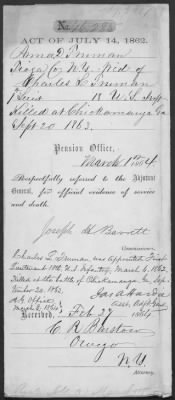 ACT OF JULY 14, 1862.
Truman
Tioga Co. N.Y. Wid. of
Charles L. Truman
1 Lieut 18 U.S. Inft
Killed at Chickamauga Ga
Sept 20 1863.
Pension Office,
March 1st 1864
Respectfully referred to the Adjutant
General, for official evidence of service
and death.
Joseph H Barrett
Commissioner.
Charles L. Truman was appointed First
Lieutenant 18th U.S. Infantry, March 6, 1862,
Killed at the battle of Chickamauga Ga. Sep-
tember 20, 1863.
A.G. Office
Received, Feb 27 1864
Owego
N.Y.
Attorney.